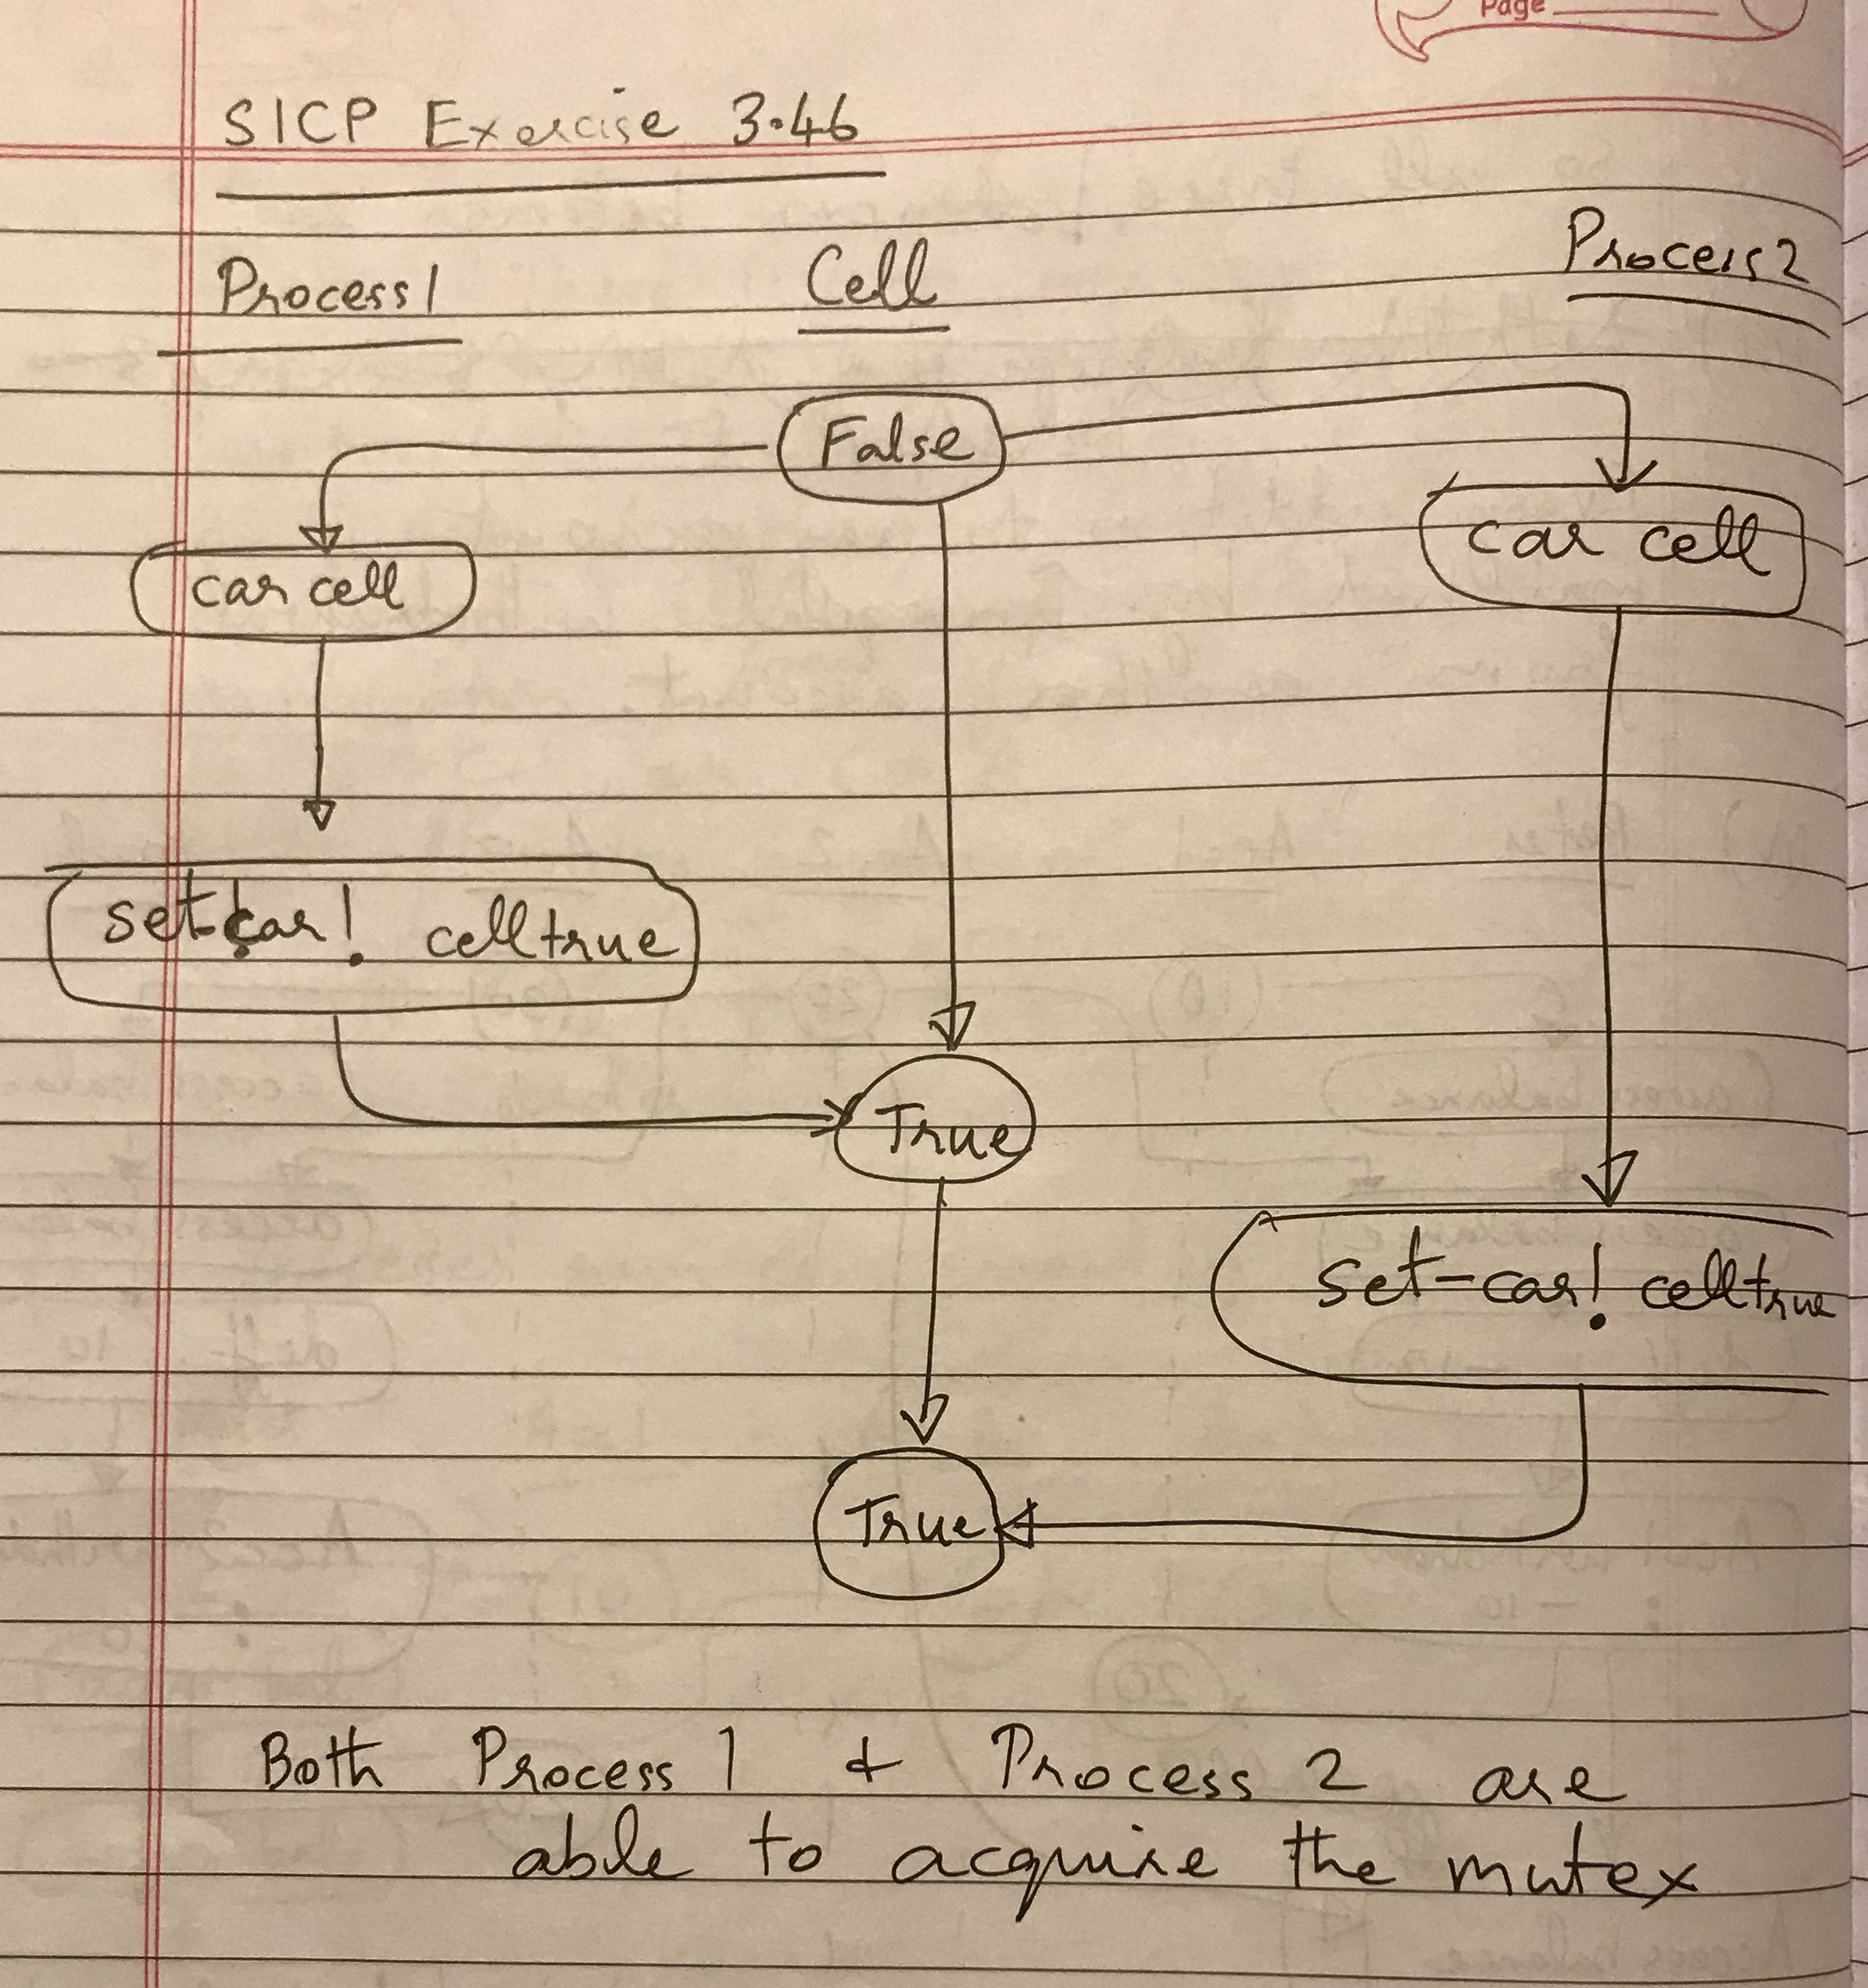 Page
SICP Exercise 3.46
Process1 Cell Process2
False
car cell
car cell
set-car! cell true
True
set-car! cell true
True
Both Process 1 & Process 2 are
able to acquire the mutex